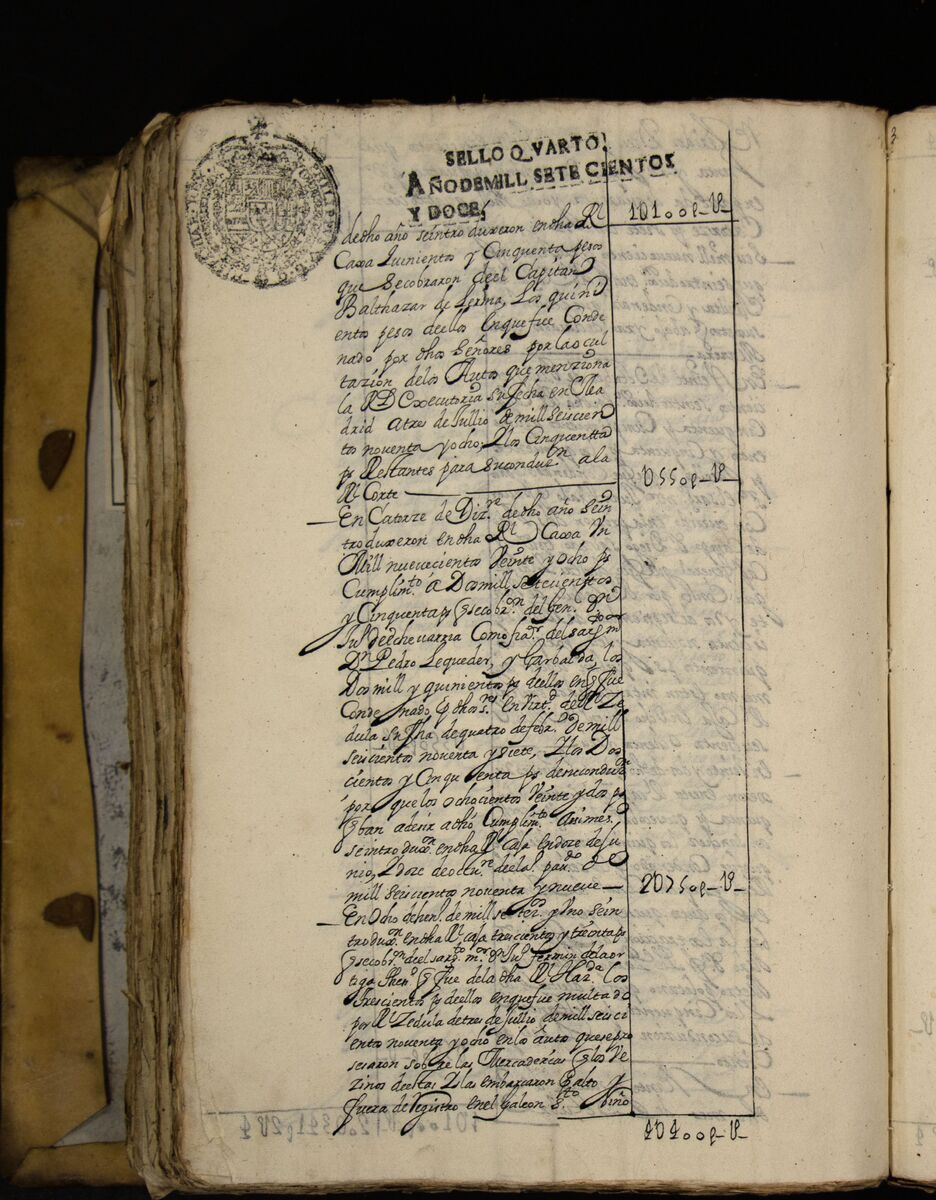 SELLO QVARTO,
AÑODEMILL SETECIENTOS
Y DOCE,
101oop-U-
dedho año seintroduxeron endha Rl
Caxa quinientos y Cinquenta pesos
que Secobraron deel Capitan
Balthazar de Lerma, Los quini
entos pesos deellos enquefue Conde
nado por dhos Señores por laocul
tazion delos Autos quemenziona
la Rl Executoria su fecha en Ma
drid atres deJullio demill Seiscien
tos noventa yocho, Ylos Cinquentta
ps Restantes para Suconduon ala
Rl Corte
055op-U-
En Catorze de Dizre dedho año Sein
troduxeron endha Rl Caxa Vn
Mill nuevecientos Veinte y Ocho ps
Cumplimto a Dosmill, setecientos
y Cinquenta ps q secobron del Gen. Dn
Jun deechevarria Como fiaor del sargto mor
Dn Pedro Lequeder, y Garbalda, los
Dosmill y quinientos ps deellos enq fue
Condenado p dhos Sres en Virtd de Rl Ze
dula su fha dequatro defebro Demill
seiscientos noventa ysiete, Ylos Dos
cientos y Cinquenta ps desuconduon
por quelos ochocientos Veinte ydos ps
q ban adesir adho Cumplimto
seintroduxon endha Rl Caxa endoze deJu
nio, Ydoze deocture
mill seiscientos noventa ynueve
2075op-U-
En Ocho dehenro demill seteztos yVno Sein
troduxon endha Rl caxa trescientos y treinta ps
q secobron deel sargto mor Dn Jun fermin delaor
tiga thenro q fue dela dha Rl Hazda Los
trescientos ps deellos enquefue multado
por Rl Zedula detres deJullio demill seisci
entos noventa yocho enlos autos quesepro
sesaron sobre las Mercaderias q los Ve
zinos deesta Ylas embarcaron Palto y
fuera de registro enel galeon Sto Niño
101oop-U-